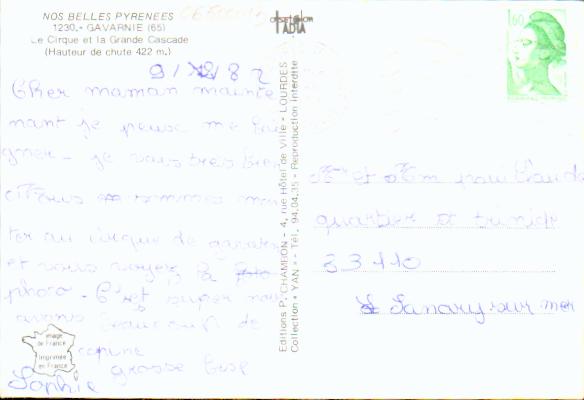 NOS BELLES PYRENEES
1230.- GAVARNIE (65)
Le Cirque et la Grande Cascade
(Hauteur de chute 422 m.)
9/ 82
Cher maman mainte
nant je peux me
gner - je vais tres bien
Nous sommes mon
ter au cirque de gavarn
et vous voyez la
photo - C'est super nous
avons beaucoup de
copine
grosse bise
Sophie
Image
de France
Imprimée
en France
Editions P. CHAMBON - 4, rue Hôtel de Ville - LOURDES
Collection "YAN" - Tél. 94.04.35 - Reproduction interdite
1,60
Mr et Mm
quartier
83110
Sanary sur mer